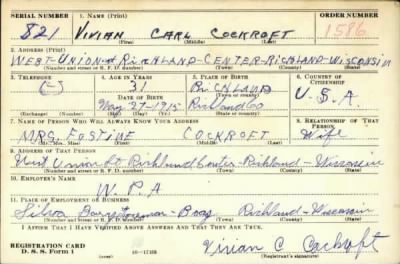 SERIAL NUMBER 1. NAME (Print) ORDER NUMBER
821 VIVIAN CARL COCKROFT 1586
(First) (Middle) (Last)
2. ADDRESS (Print)
WEST-UNION-St RICHLAND-CENTER-RICHLAND-WISCONSIN
(Number and street or R. F. D. number) (Town) (County) (State)
3. TELEPHONE 4. AGE IN YEARS 5. PLACE OF BIRTH 6. COUNTRY OF CITIZENSHIP
(-) 31 RICHLAND
DATE OF BIRTH (Town or county) U.S.A.
1915 Richland Co
(Exchange) (Number) (Mo.) (Day) (Yr.) (State or country)
7. NAME OF PERSON WHO WILL ALWAYS KNOW YOUR ADDRESS 8. RELATIONSHIP OF THAT PERSON
MRS. COCKROFT Wife
(Mr., Mrs., Miss) (First) (Middle) (Last)
9. ADDRESS OF THAT PERSON
West Union St Richland Center - Richland - Wisconsin
(Number and street or R. F. D. number) (Town) (County) (State)
10. EMPLOYER'S NAME
W. P. A
11. PLACE OF EMPLOYMENT OR BUSINESS
Foreman - Boaz Richland - Wisconsin
(Number and street or R. F. D. number) (Town) (County) (State)
I AFFIRM THAT I HAVE VERIFIED ABOVE ANSWERS AND THAT THEY ARE TRUE.
REGISTRATION CARD Vivian C Cockroft
D. S. S. Form 1 16-17105 (Registrant's signature)